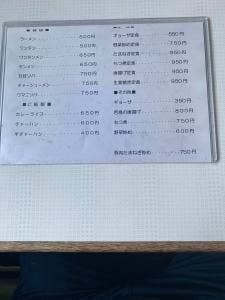 ラーメン 500円
ワンタン 500円
ワンタンメン 650円
タンメン 650円
750円
チャーシューメン 750円
ワマニソバ 750円
■ご飯類■
カレーライス 650円
チャーハン 600円
キチャーハン 600円
ギョーザ定食 550円
野菜炒め定食 750円
950円
もつ煮定食 950円
唐揚げ定食 950円
生姜焼き定食 950円
■その他■
ギョーザ 350円
若鶏の唐揚げ 800円
もつ煮 750円
野菜炒め 600円
豚肉たまねぎ炒め 750円